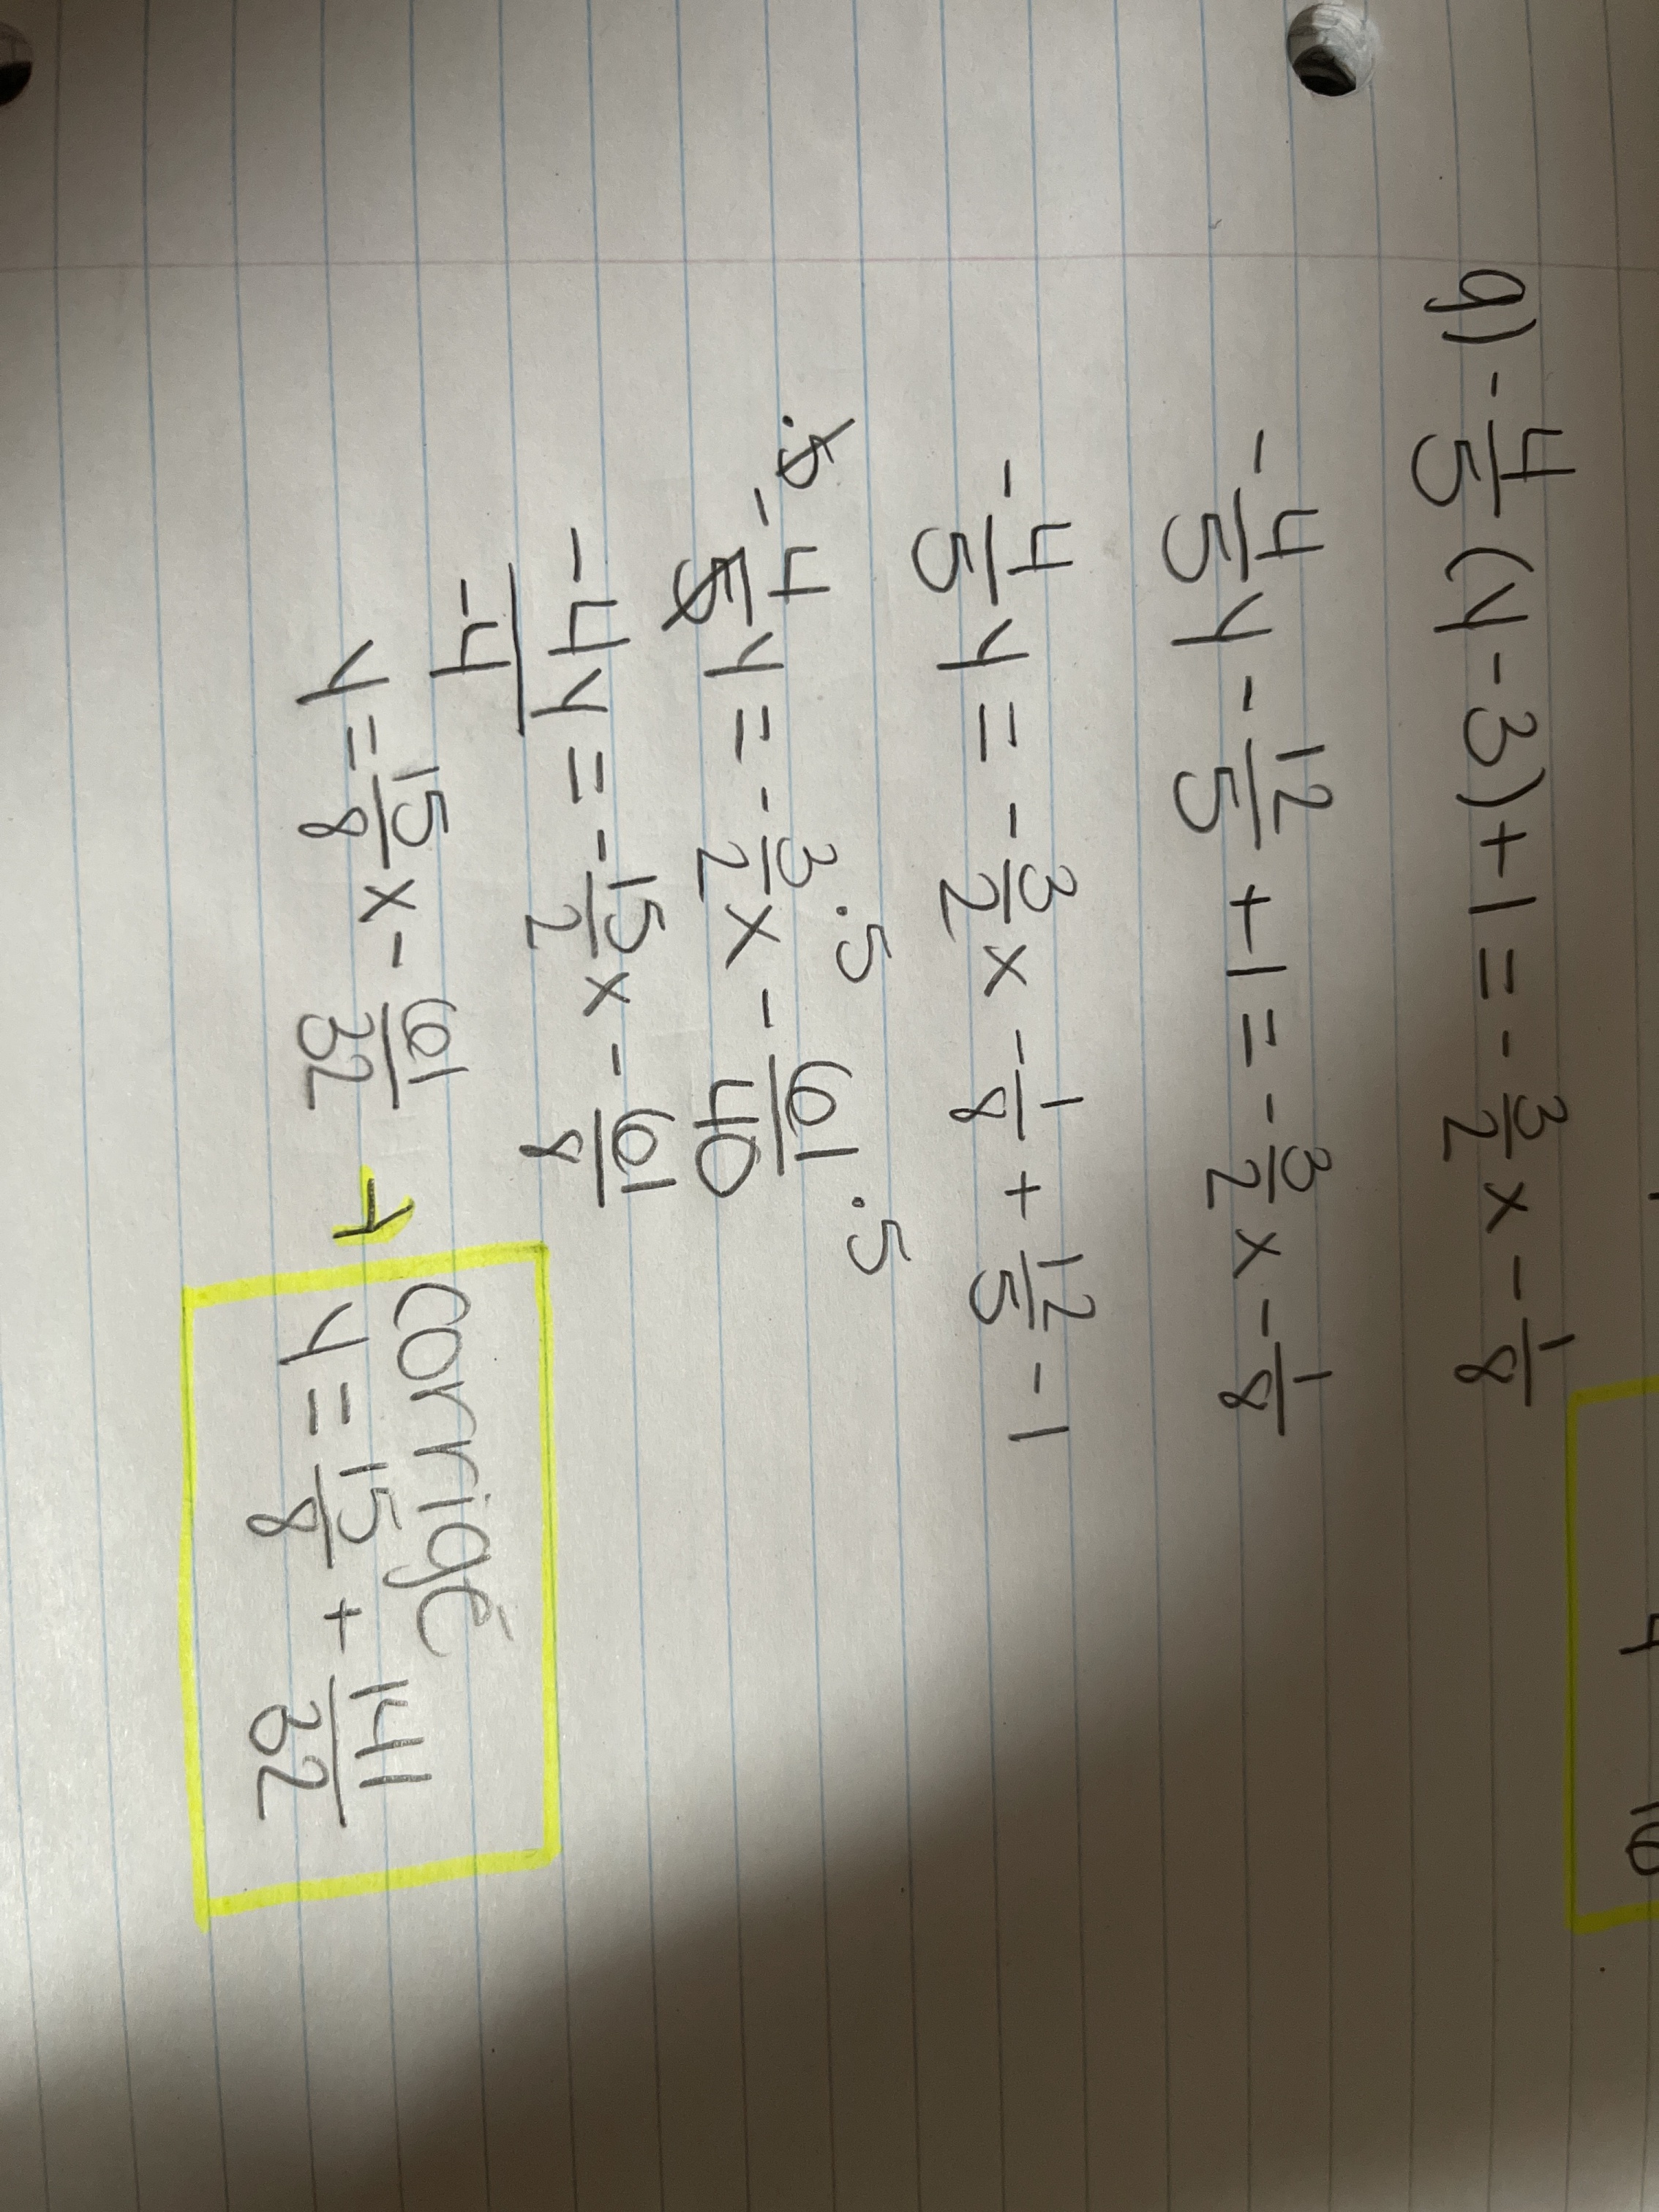 4 16
q) -4/5 (y - 3) + 1 = -3/2 x - 1/8
-4/5 y - 12/5 + 1 = -3/2 x - 1/8
-4/5 y = -3/2 x - 1/8 + 12/5 - 1
·5 -4/5 y = -3/2 ·5 x - 61/40 ·5
-4y/-4 = -15/2 x - 61/8
y = 15/8 x - 61/32 → corrigé
y = 15/8 + 141/32